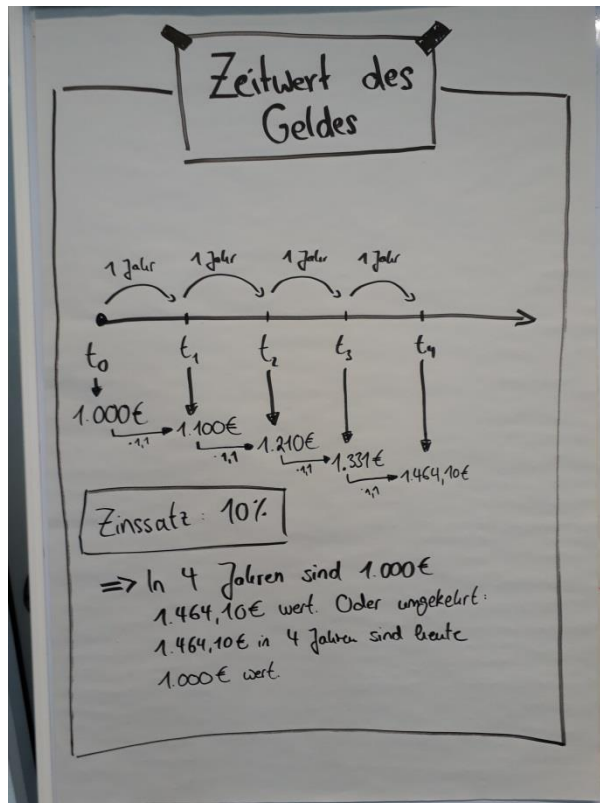 Zeitwert des
Geldes
1 Jahr 1 Jahr 1 Jahr 1 Jahr
t₀ t₁ t₂ t₃ t₄
1.000€ 1.100€ 1.210€ 1.331€ 1.464,10€
·1,1 ·1,1 ·1,1 ·1,1
Zinssatz: 10%
=> In 4 Jahren sind 1.000€
1.464,10€ wert. Oder umgekehrt:
1.464,10€ in 4 Jahren sind heute
1.000€ wert.